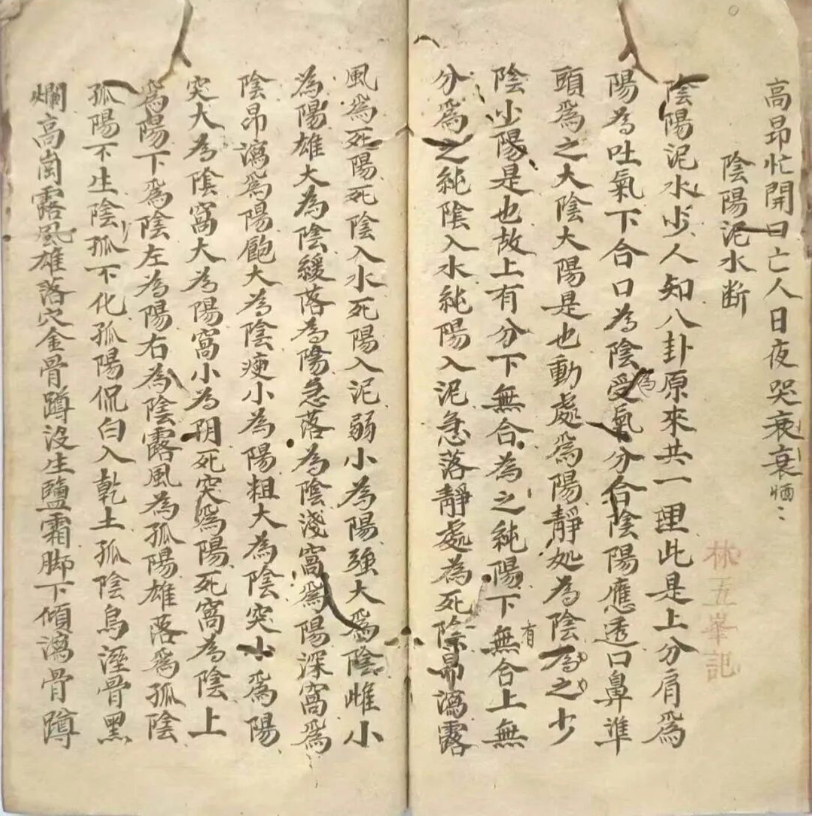 高昂忙開日亡人日夜哭衰衰
陰陽泥水断
陰陽泥水少人知八卦原來共一理此是上分肩為
陽為吐氣下合口為陰受氣分合陰陽應透口鼻準
頭為之大陰大陽是也動處為陽靜処為陰為之少
陰少陽是也故上有分下無合為之純陽下有合上無
分為之純陰入水純陽入泥急落靜處為死陰昂瀉露
風為死陽死陰入水死陽入泥弱小為陽強大為陰雌小
為陽雄大為陰緩落為陽急落為陰淺窩為陽深窩為
陰昂瀉為陽飽大為陰瘦小為陽粗大為陰突小為陽
突大為陰窩大為陽窩小為阴死突為陽死窩為陰上
為陽下為陰左為陽右為陰露風為孤陽雄落為孤陰
孤陽不生陰孤不化孤陽侃白入乾土孤陰烏溼骨黑
爛高崗露風雄落穴金骨蹲沒生鹽霜脚下傾瀉骨蹲
林五峯記